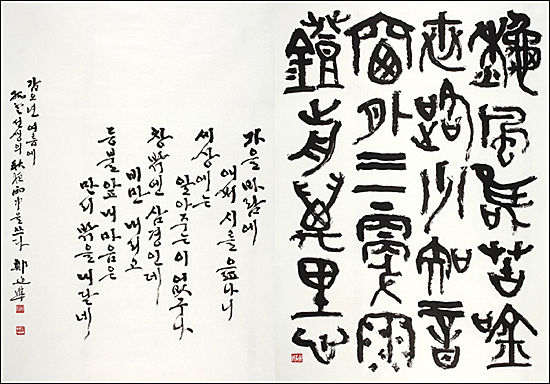 龝風惟苦唫
世路少知音
窗外三更雨
鐙前萬里心
가을 바람에
애써 시를 읊나니
세상에는
알아주는 이 없구나
창밖엔 삼경인데
비만 내리고
등불 앞 내 마음은
만리 밖을 내닫네
갑오년 여름에
孤雲선생의 秋夜雨中을 쓰다 鄭道準